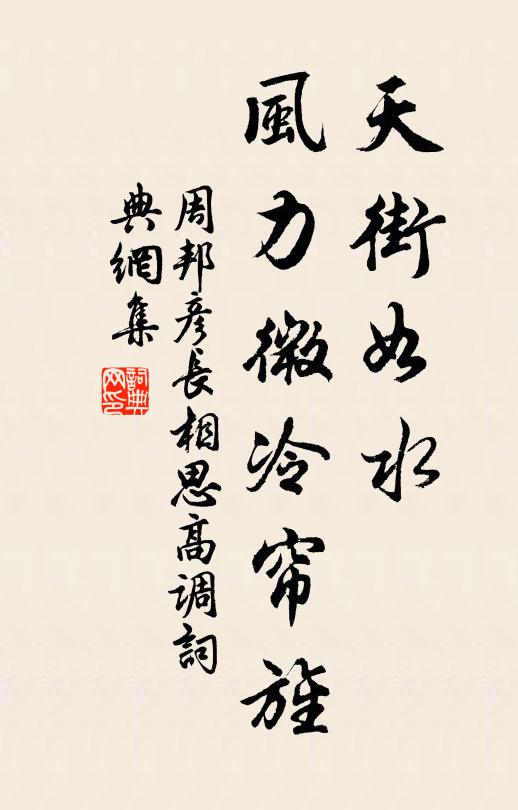 天街如水
風力微冷帘旌
周邦彦長相思高調詞
典網集
詞典网印